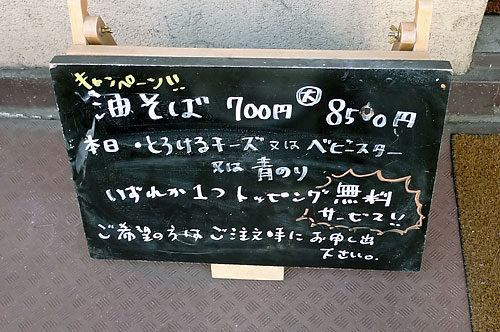 キャンペーン!!
油そば 700円 大 850円
本日・とろけるチーズ 又は ベビースター
又は 青のり
いずれか1つトッピング無料
サービス!!
ご希望の方は ご注文時に お申し出
下さい。